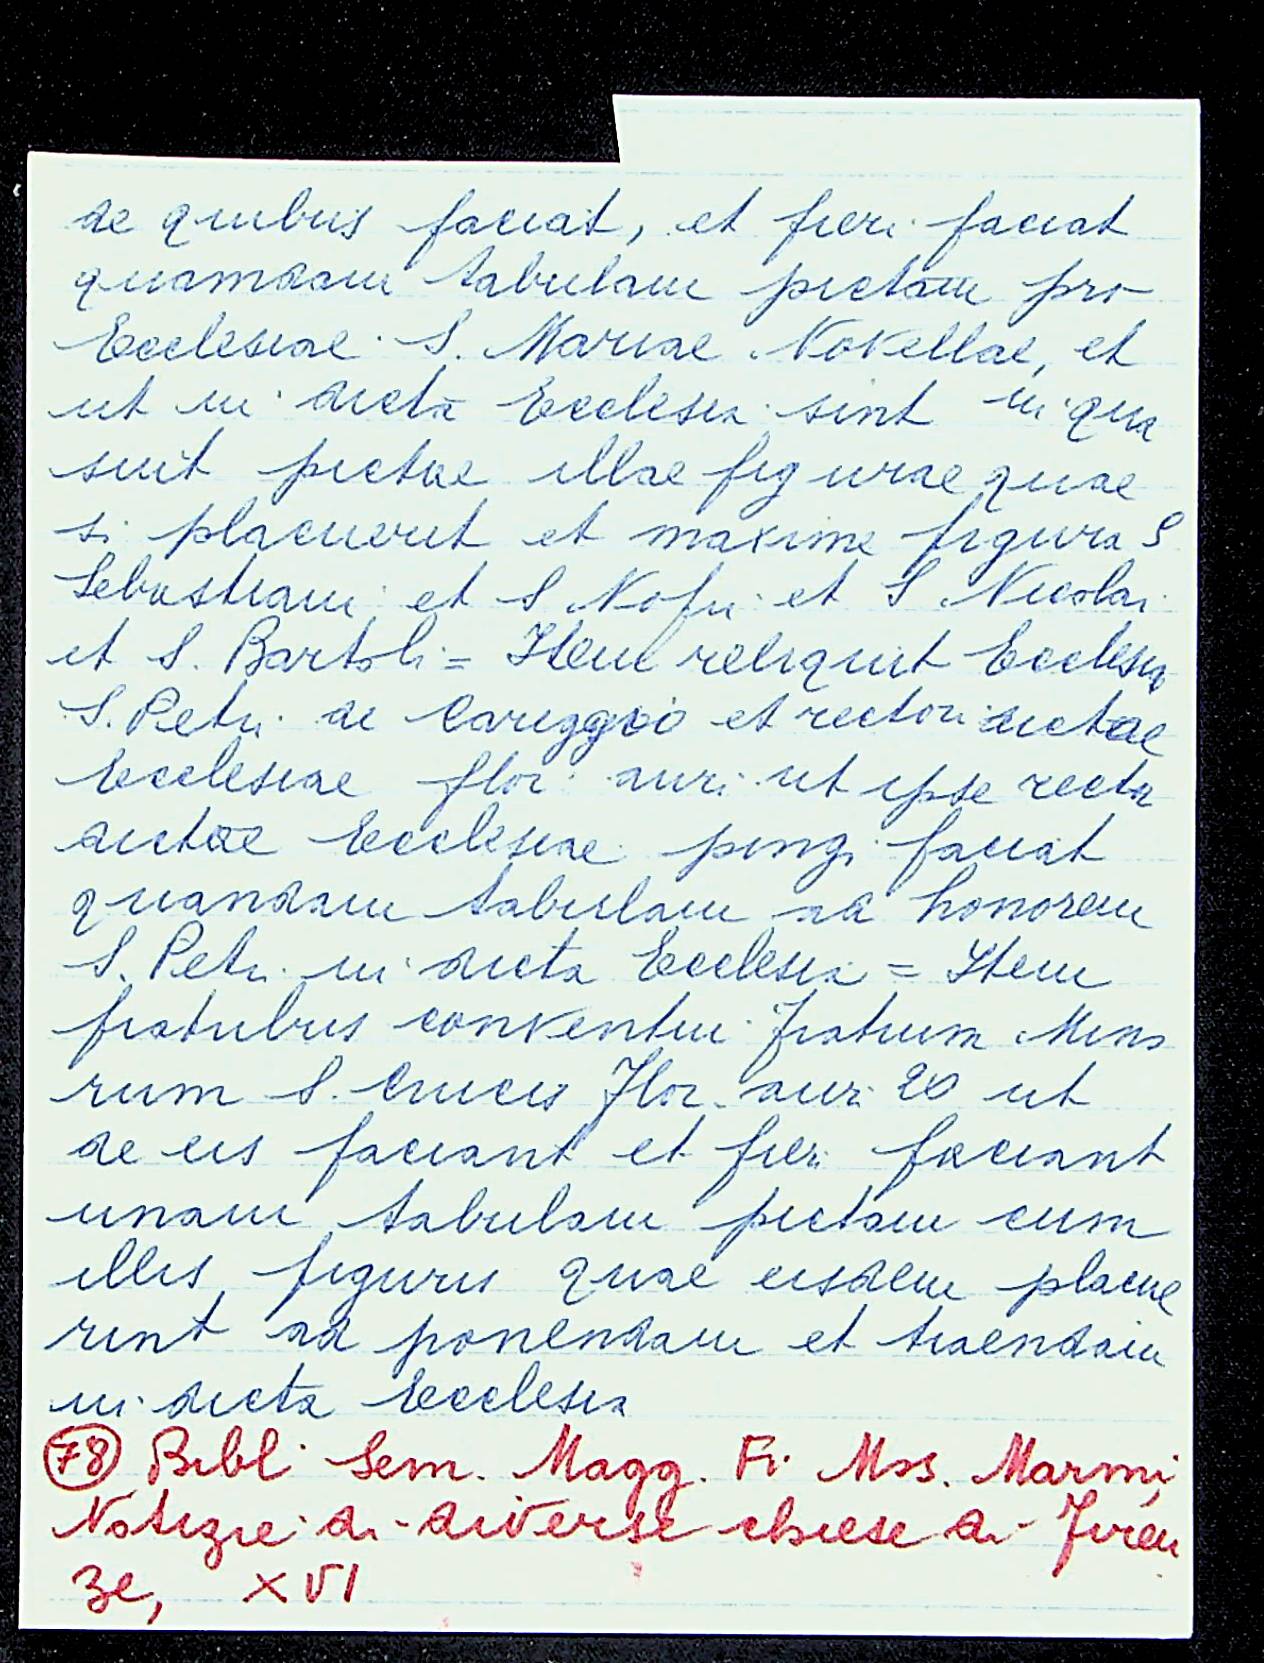 de quibus faciat, et fieri faciat
quamdam tabulam pictam pro
Ecclesiae S. Mariae Novellae, et
ut in dicta Ecclesia sint in qua
sint pictae illae figurae quae
si placuerit et maxime figura S
Sebastiani et S Nofri et S Nicolai
et S. Bartoli = Item reliquit Ecclesia
S. Petri de Careggio et rectori dictae
Ecclesiae flor auri ut ipse recto
dictae Ecclesiae pingi faciat
quandam tabulam ad honorem
S. Petri in dicta Ecclesia = Item
fratribus conventui Fratrum Mino
rum S. Crucis Flor. auri 20 ut
de eis faciant et fieri faciant
unam tabulam pictam cum
illis figuris quae eisdem placue
rint ad ponendam et traendam
in dicta Ecclesia
78 Bibl Sem. Magg. Fi. Mss. Marmi,
Notizie di diverse chiese di Firen
ze, XVI